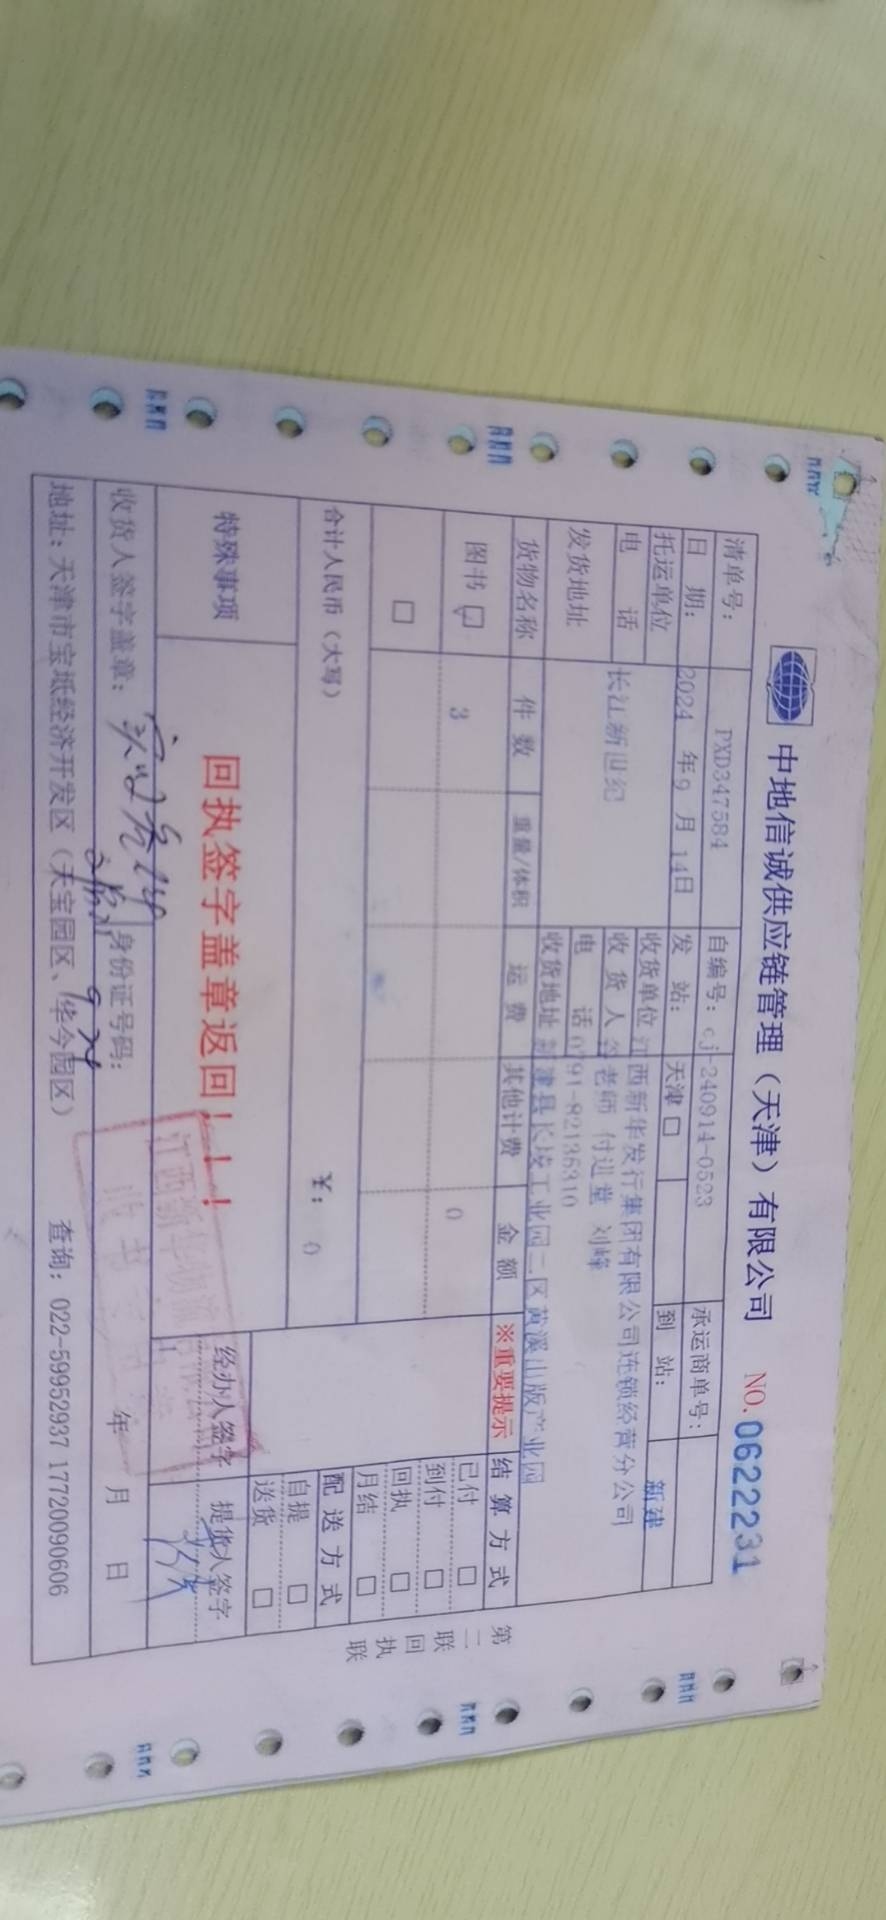 中地信诚供应链管理（天津）有限公司 NO.0622231
清单号： PXD347584 自编号：cj-240914-0523 承运商单号：
日 期： 2024 年 9 月 14日 发 站： 天津 □ 到 站： 新建
托运单位 收货单位 江西新华发行集团有限公司连锁经营分公司
电 话 长江新世纪 收 货 人 老师 付进堂 刘峰
发货地址 电 话 0791-82135310
收货地址 新建县长堎工业园二区黄溪出版产业园
货物名称 件 数 重量/体积 运 费 其他计费 金 额 ※重要提示 结 算 方 式
图书 3 0 已付 □
□ 到付 □
回执 □
月结 □
合计人民币（大写） ¥： 0 配 送 方 式
自提 □
送货 □
特殊事项 回执签字盖章返回！！！ 经办人签字 提货人签字
收货人签字盖章： 身份证号码： 年 月 日
地址：天津市宝坻经济开发区（天宝园区、华今园区） 查询：022-59952937 17720090606
第二联 回执联
江西新华物流